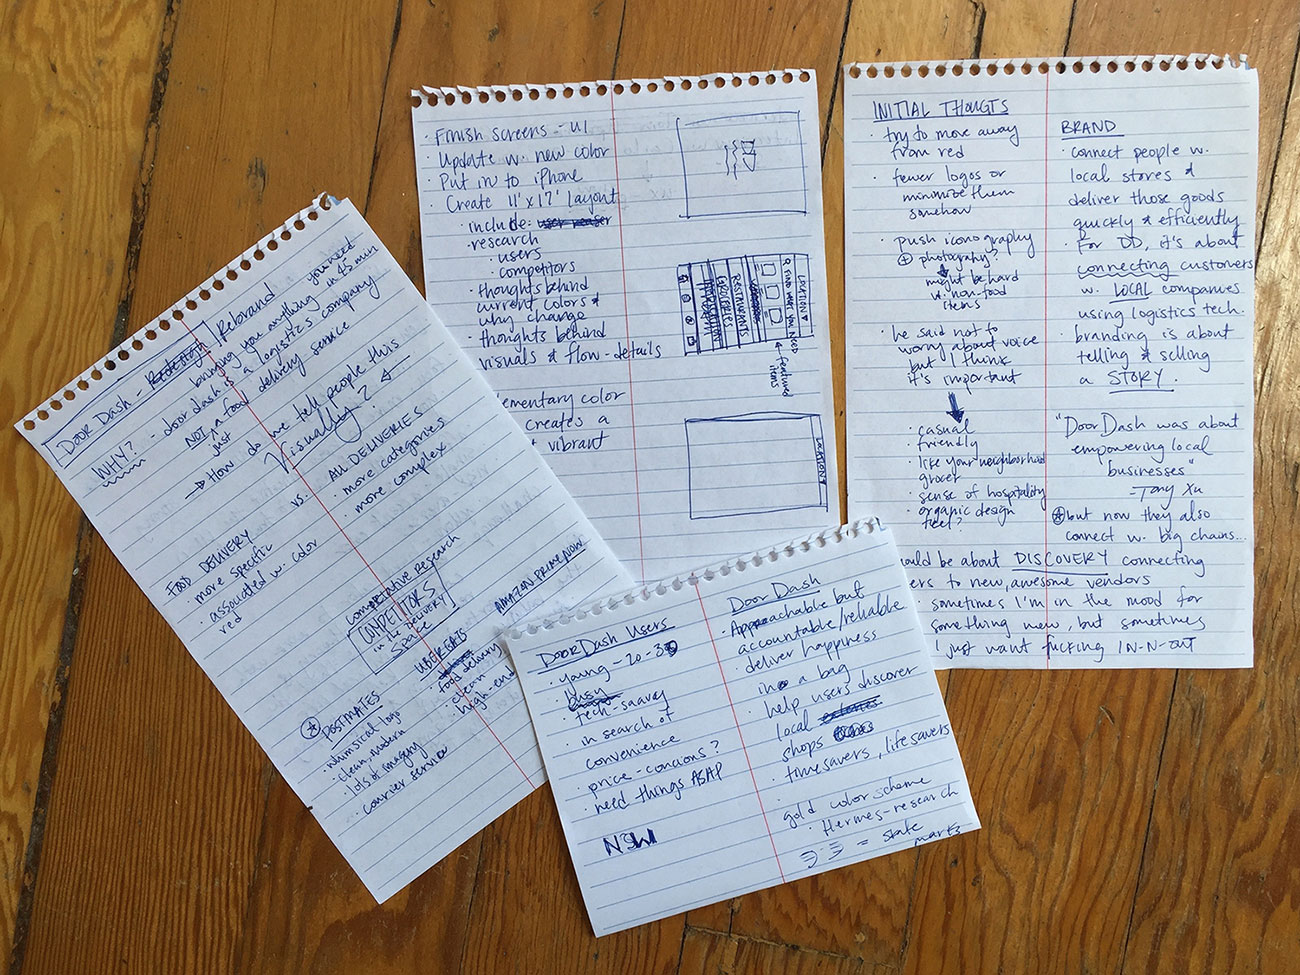 DOOR DASH - Redesign / Rebrand
WHY?
- bringing you anything you need in 45 min
- door dash is a logistics company
NOT just a food delivery service
→ How do we tell people this
Visually?
FOOD DELIVERY
· more specific
· associated w. color
red
vs.
ALL DELIVERIES
· more categories
· more complex
comparative research
COMPETITORS
in the DELIVERY
Space
POSTMATES
· whimsical logo
· clean, modern
· lots of imagery
· courier service
UBER EATS
· food delivery
· clean
· high-end
AMAZON PRIME NOW
· Finish screens - UI
· Update w. new color
· Put in to iphone
· Create 11'x17' layout
· include: user reaser
· research
· users
· competitors
· thoughts behind
current colors &
why change
· thoughts behind
visuals & flow - details
lementary color
creates a
vibrant
LOCATION ▼
FIND WHAT YOU NEED
RESTAURANTS
GROCERIES
← featured
items
LOCATION ▼
INITIAL THOUGTS
· try to move away
from red
· fewer logos or
minimize them
somehow
· push iconography
+ photography?
might be hard
w. non-food
items
· he said not to
worry about voice
but I think
it's important
· casual
· friendly
· like your neighborhood
grocer
· sense of hospitality
· organic design
feel?
BRAND
· connect people w.
local stores &
deliver those goods
quickly & efficiently
· For DD, it's about
connecting customers
w. LOCAL companies
using logistics tech.
· branding is about
telling & selling
a STORY.
"DoorDash was about
empowering local
businesses"
- Tony Xu
but now they also
connect w. big chains...
ould be about DISCOVERY connecting
ers to new, awesome vendors
· sometimes I'm in the mood for
something new, but sometimes
I just want fucking IN-N-OUT
DOORDASH USERS
· young - 20-30
· busy
· tech-saavy
· in search of
convenience
· price-concious?
· need things ASAP
MEN
DOORDASH
· Approachable but
accountable/reliable
· deliver happiness
in a bag
· help users discover
local
shops
· timesavers, lifesavers
gold color scheme
· Hermes - research
= skate
marks